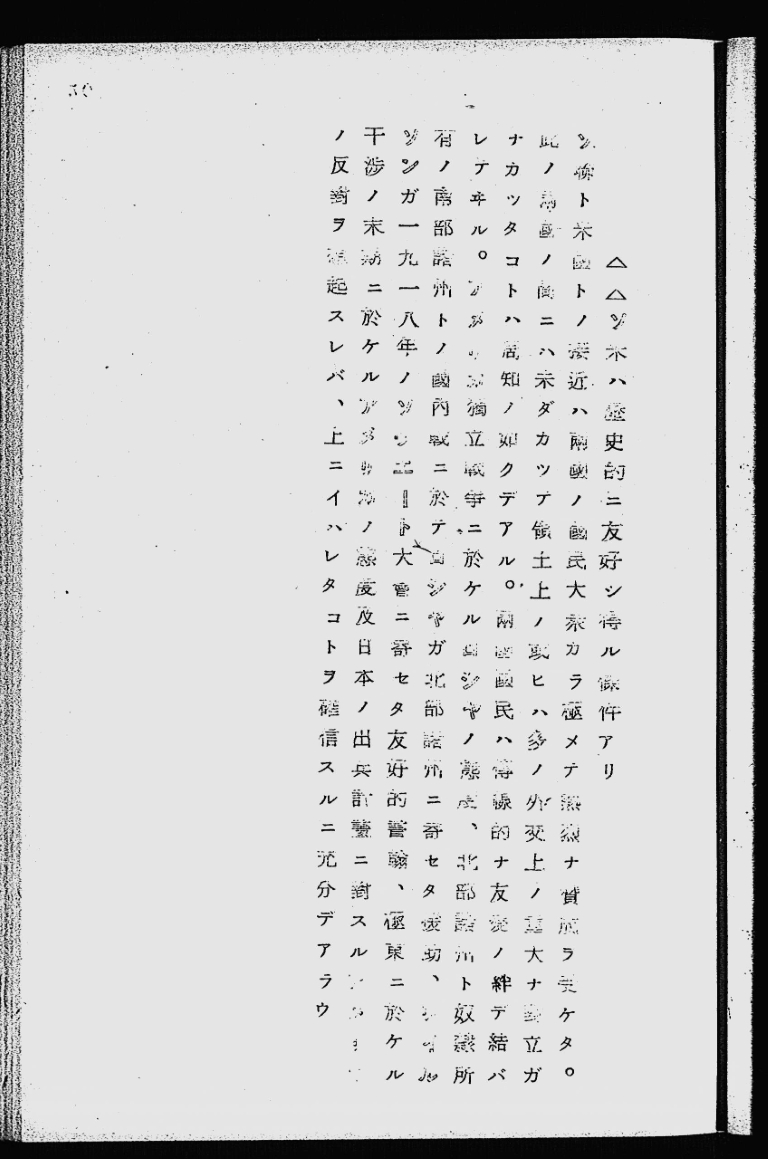 △△ソ米ハ歴史的ニ友好シ得ル條件アリ
ソ聯ト米國トノ接近ハ兩國ノ國民大衆カラ極メテ熱烈ナ賛成ヲ受ケタ。
此ノ兩國ノ間ニハ未ダカツテ領土上ノ或ヒハ多ノ外交上ノ重大ナ對立ガ
ナカツタコトハ周知ノ如クデアル。兩國國民ハ傳線的ナ友愛ノ絆デ結バ
レテヰル。アメリカ獨立戰爭ニ於ケルロシヤノ態度、北部諸州ト奴隷所
有ノ南部諸州トノ國內戰ニ於テロシヤガ北部諸州ニ寄セタ援助、ウイル
ソンガ一九一八年ノソヴエート大會ニ寄セタ友好的書翰、極東ニ於ケル
干渉ノ末期ニ於ケルアメリカノ態度及日本ノ出兵計畫ニ對スルアメリカ
ノ反對ヲ想起スレバ、上ニイハレタコトヲ確信スルニ充分デアラウ